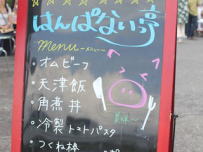 はんぱない亭
Menu ーメニューー
・オムビーフ
・天津飯
・角煮丼
・冷製トマトパスタ
・つくね棒